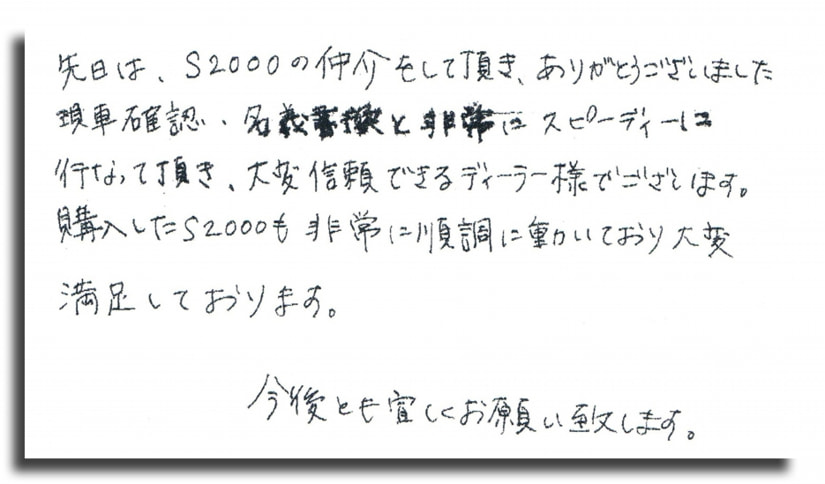 先日は、S2000の仲介をして頂き、ありがとうございました
現車確認、名義書換と非常にスピーディーに
行なって頂き、大変信頼できるディーラー様でございます。
購入したS2000も非常に順調に動いており大変
満足しております。
今後とも宜しくお願い致します。